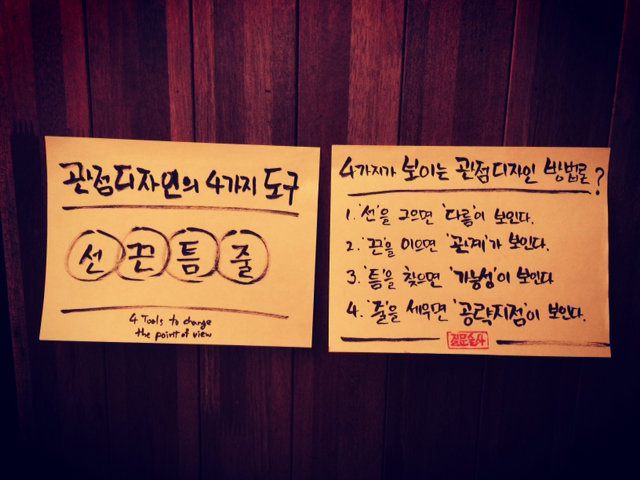 관점디자인의 4가지 도구
선 끈 틈 줄
4 Tools to change
the point of view
4가지가 보이는 관점디자인 방법론?
1. '선'을 그으면 '다름'이 보인다.
2. '끈'을 이으면 '관계'가 보인다.
3. '틈'을 찾으면 '가능성'이 보인다
4. '줄'을 세우면 '공략지점'이 보인다.
질문술사